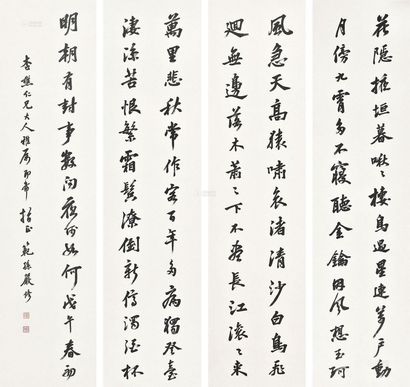 花隱掖垣暮啾々棲鳥過星連萬戶動
月傍九霄多不寢聽金鑰因風想玉珂
風急天高猿嘯哀渚清沙白鳥飛
迴無邊落木蕭々下不盡長江滾々來
萬里悲秋常作客百年多病獨登臺
淒涼苦恨繁霜鬢潦倒新停濁酒杯
明朝有封事數問夜如何戊午春初
仁兄大人雅屬即希指正範孫嚴修